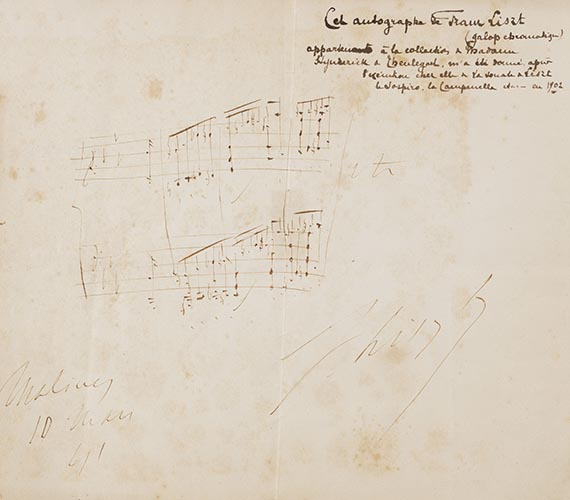 Cet autographe de Franz Liszt
(galop chromatique)
appartenant à la collection de Madame
de m'a été donné, après
l'exécution chez elle de la Sonate de Liszt
le Sospiro, la Campanella en 1902
etc
Liszt
Malines
10 Mars